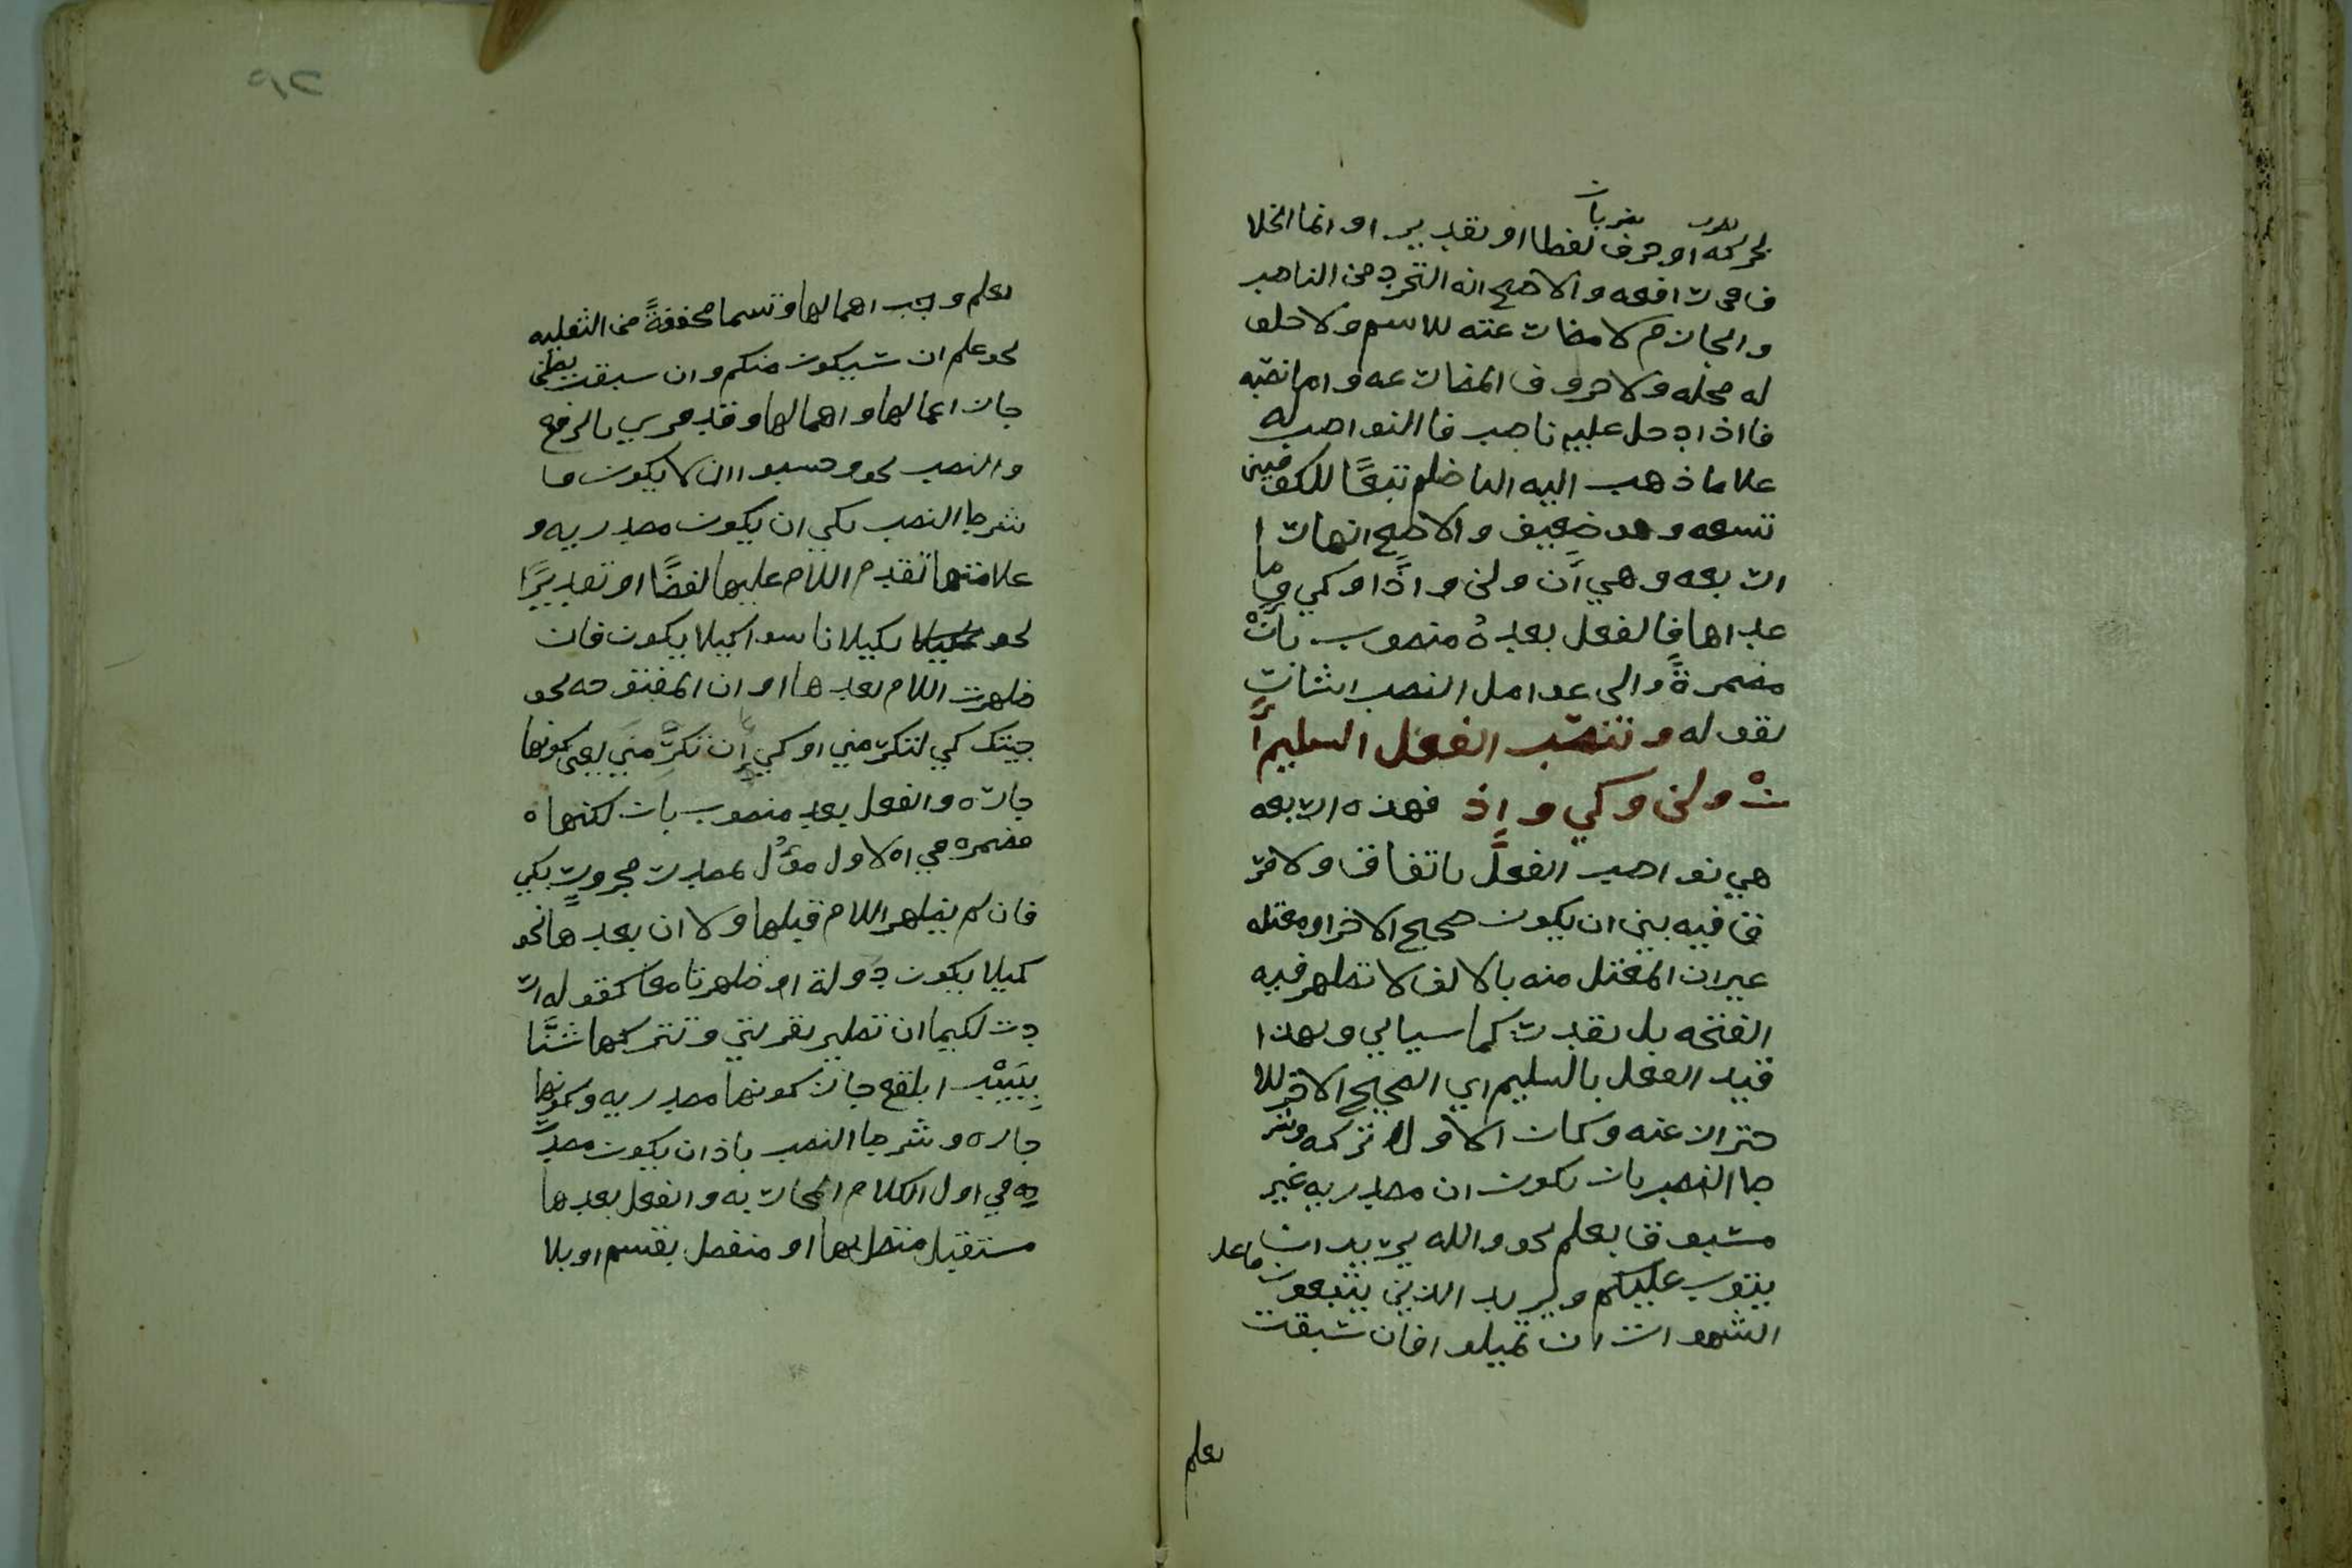 بحركه او حرف لفظا او تقدير او انما الخلا
ف في رافعه والاصح انه التجرد من الناصب
والجازم لا مضارعته للاسم ولا حلو
له محله ولا حروف المضارعه واما نصبه
فااذا دخل عليه ناصب فاالنواصب له
علا ما ذهب اليه الناضم تبعًا للكوفيين
تسعه وهو ضعيف والاصح انها ر ا
اربعه وهي أن ولن واذًا وكي وما
عداها فالفعل بعده منصوب بأنْ
مضمرةً والى عوامل النصب اشار
بقوله وتنصب الفعل السليم أ
نْ ولن وكي واِذ فهذه اربعه
هي نواصب الفعل باتفاق ولا فر
ق فيه بين ان يكون صحيح الاخر او معتله
غير ان المعتل منه بالالف لا تظهر فيه
الفتحه بل تقدر كما سياتي ولهذا
قيد الفعل بالسليم اي الصحيح الاخر للا
حتراز عنه وكان الاولا تركه وشر
طا النصب بان تكون ان مصدريه غير
مسبوق بعلم نحو والله يريد ان
يتوب عليكم ويريد الذين يتبعون
الشهوات ان تميلو افان سبقت
بعلم
بعلم وجب اهمالها وتسما مخففةً من الثقليه
نحو علم ان سيكون منكم وان سبقت بظن
جاز اعمالها واهمالها وقد قري بالرفع
والنصب نحو وحسبوا ان لا يكون و
شرطا النصب بكي ان يكون مصدريه و
علامتها تقدم اللام عليها لفضًا او تقديرًا
نحو لكيلا تاسوا كيلا يكون فان
ظهرت اللام بعدها او ان المفتوحه نحو
جيتك كي لتكرمني او كي أن تكرمني تعين كونها
جاره والفعل بعد منصوب بان لكنها
مضمره في الاول مؤل بمصدر مجرور بكي
فان لم يظهر اللام قبلها ولا ان بعدها نحو
كيلا يكون دولة او ظهرتا معا كقوله ار
دت لكيما ان تطير بقربتي وتتركها شنًّا
بِبَيْدا بلقع جاز كونها مصدريه وكونها
جاره وشرطا النصب باذ ان يكون مصدر
ه في اول الكلام المجاب به والفعل بعدها
مستقبل متصل بها او منفصل بقسم او بلا